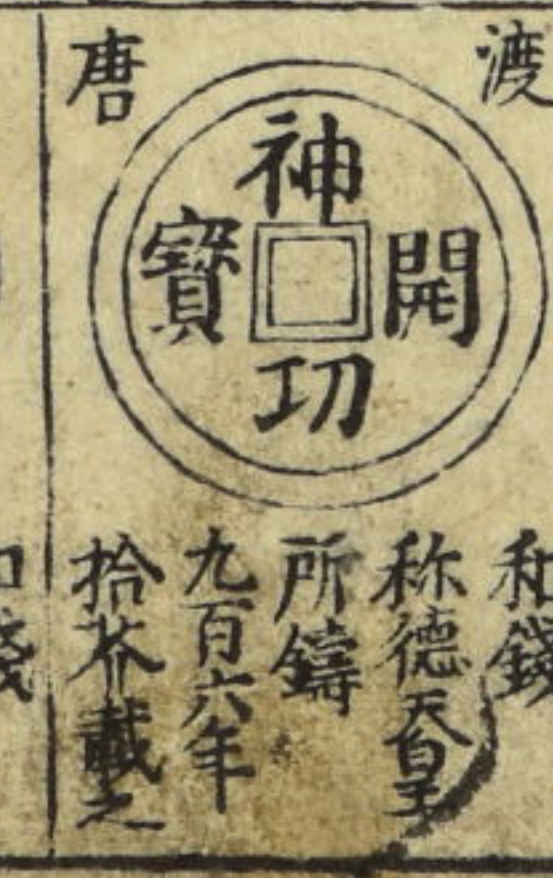 渡
唐
神功開寶
和錢
称德天皇
所鑄
九百六年
拾芥載之